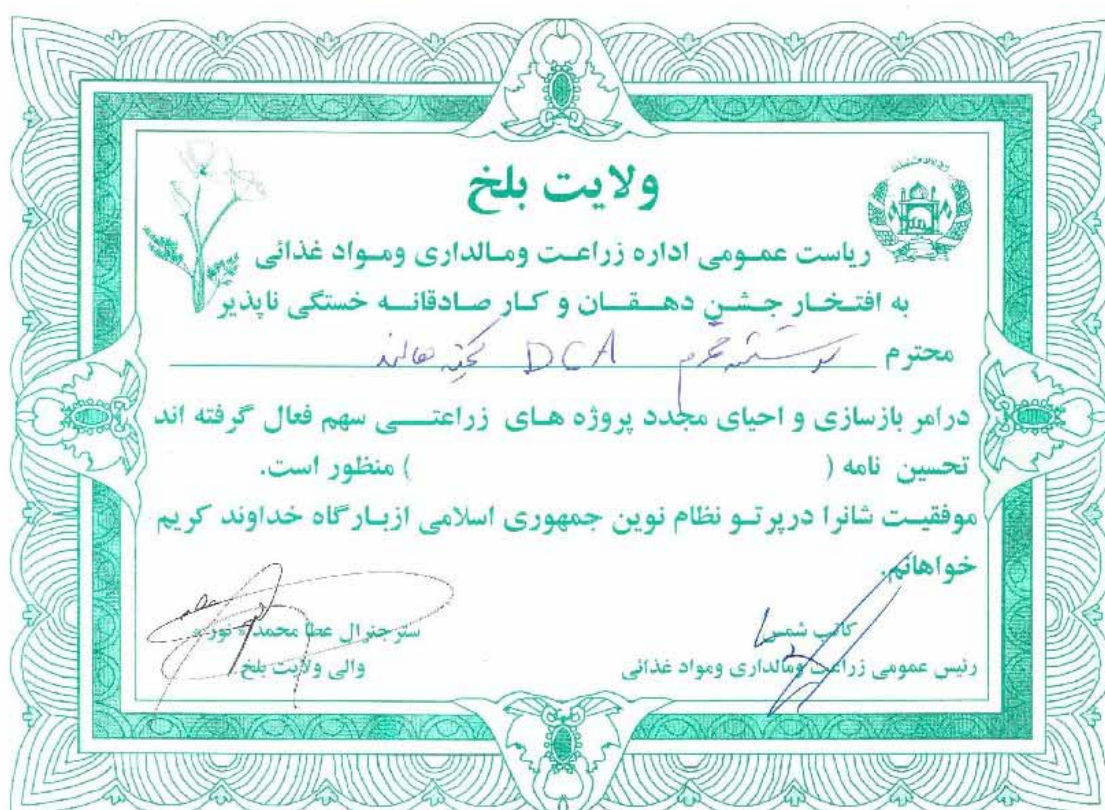 ولایت بلخ
ریاست عمومی اداره زراعت ومالداری ومواد غذائی
به افتخار جشن دهقان و کار صادقانه خستگی ناپذیر
محترم DCA
درامر بازسازی و احیای مجدد پروژه های زراعتی سهم فعال گرفته اند
تحسین نامه ( ) منظور است.
موفقیت شانرا درپرتو نظام نوین جمهوری اسلامی ازبارگاه خداوند کریم
خواهانم.
کاتب شمس
رئیس عمومی زراعت ومالداری ومواد غذائی
سترجنرال عطا محمد « نور »
والی ولایت بلخ